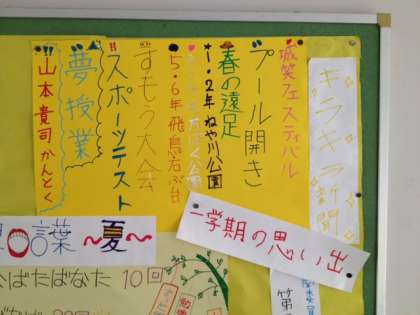 キラキラ新聞
城笑フェスティバル
プール開き
春の遠足
★1・2年ねや川公園
5・6年飛鳥
すもう大会
スポーツテスト
夢授業
山本貴司かんとく
一学期の思い出
言葉
〜夏〜
ばたばなた 10回